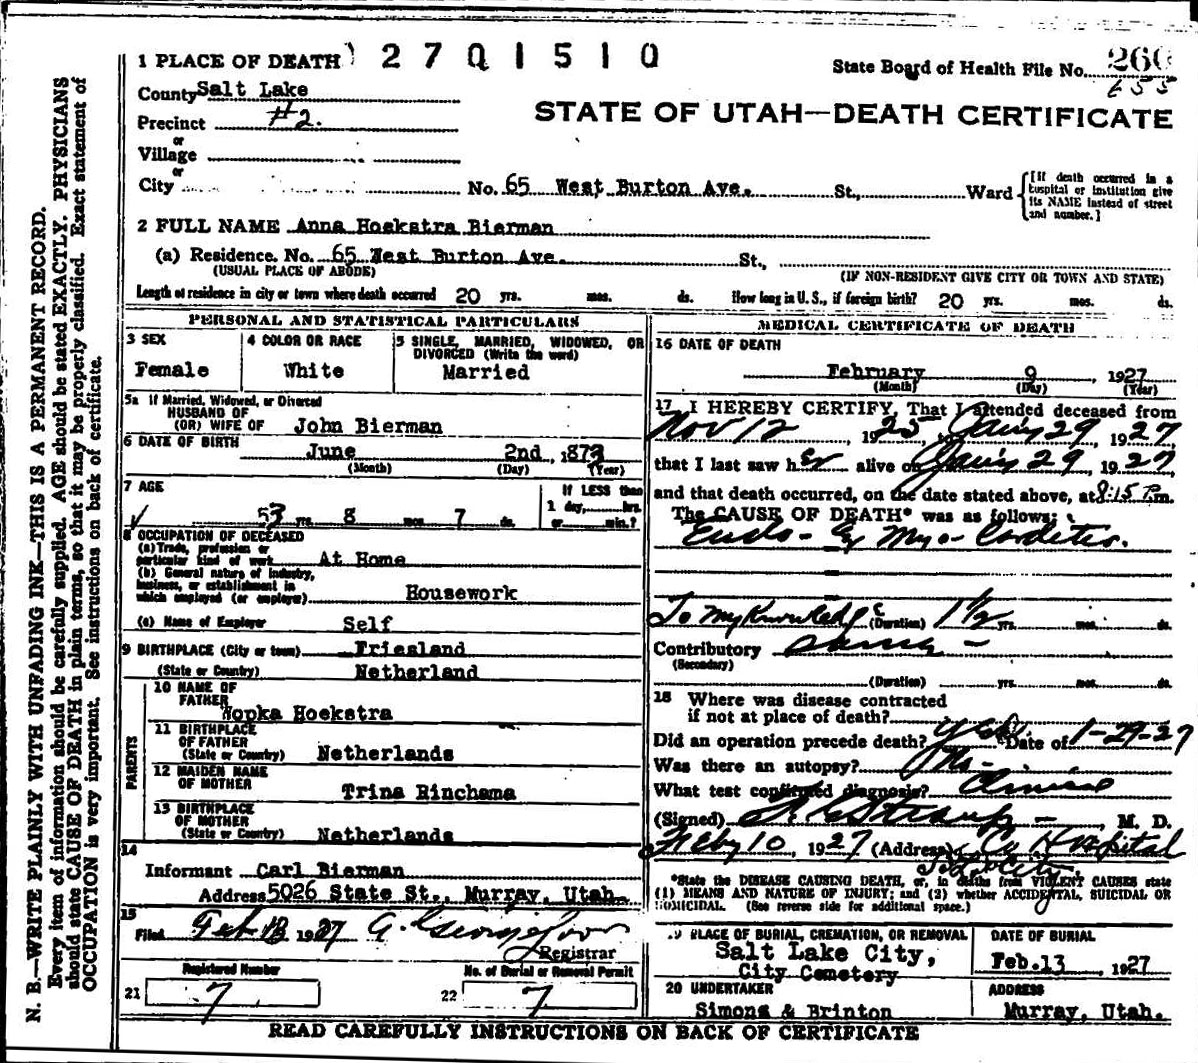 N. B.—WRITE PLAINLY WITH UNFADING INK—THIS IS A PERMANENT RECORD.
Every item of information should be carefully supplied. AGE should be stated EXACTLY. PHYSICIANS
should state CAUSE OF DEATH in plain terms, so that it may be properly classified. Exact statement of
OCCUPATION is very important. See instructions on back of certificate.
1 PLACE OF DEATH 27 0 1 5 1 0
State Board of Health File No. 260
655
County Salt Lake
Precinct #2.
STATE OF UTAH—DEATH CERTIFICATE
or
Village
or
City No. 65 West Burton Ave. St., Ward
[If death occurred in a
hospital or institution give
its NAME instead of street
and number.]
2 FULL NAME Anna Hoekstra Bierman
(a) Residence. No. 65 West Burton Ave. St.,
(USUAL PLACE OF ABODE) (IF NON-RESIDENT GIVE CITY OR TOWN AND STATE)
Length of residence in city or town where death occurred 20 yrs. mos. ds. How long in U. S., if foreign birth? 20 yrs. mos. ds.
PERSONAL AND STATISTICAL PARTICULARS
3 SEX
Female
4 COLOR OR RACE
White
5 SINGLE, MARRIED, WIDOWED, OR
DIVORCED (Write the word)
Married
5a If Married, Widowed, or Divorced
HUSBAND OF
(OR) WIFE OF John Bierman
6 DATE OF BIRTH
June 2nd, 1873
(Month) (Day) (Year)
7 AGE
53 yrs. 8 mos. 7 ds.
If LESS than
1 day, hrs.
or min.?
8 OCCUPATION OF DECEASED
(a) Trade, profession or
particular kind of work At Home
(b) General nature of industry,
business, or establishment in
which employed (or employer) Housework
(c) Name of Employer Self
9 BIRTHPLACE (City or town) Friesland
(State or Country) Netherland
PARENTS
10 NAME OF
FATHER Hopka Hoekstra
11 BIRTHPLACE
OF FATHER
(State or Country) Netherlands
12 MAIDEN NAME
OF MOTHER Trina Rinchama
13 BIRTHPLACE
OF MOTHER
(State or Country) Netherlands
14
Informant Carl Bierman
Address 5026 State St., Murray, Utah.
15
Filed Feb 13 1927
Registrar
Registered Number
21 7
No. of Burial or Removal Permit
22 7
MEDICAL CERTIFICATE OF DEATH
16 DATE OF DEATH
February 9, 1927
(Month) (Day) (Year)
17 I HEREBY CERTIFY, That I attended deceased from
Nov 12 1925, Jan'y 29 1927
that I last saw her alive on Jan'y 29 1927
and that death occurred, on the date stated above, at 8:15 P.m.
The CAUSE OF DEATH* was as follows:
Endo- & Myo-Carditis.
To my knowledge (Duration) 1½ yrs. mos. ds.
Contributory Same -
(Secondary)
(Duration) yrs. mos. ds.
18 Where was disease contracted
if not at place of death?
Did an operation precede death? Yes Date of 1-29-27
Was there an autopsy? No-
What test confirmed diagnosis? Clinical
(Signed) M. D.
Feby 10, 1927 (Address) Co Hospital
S. L. City
*State the DISEASE CAUSING DEATH, or, in deaths from VIOLENT CAUSES state
(1) MEANS AND NATURE OF INJURY; and (2) whether ACCIDENTAL, SUICIDAL OR
HOMICIDAL. (See reverse side for additional space.)
19 PLACE OF BURIAL, CREMATION, OR REMOVAL
Salt Lake City,
City Cemetery
DATE OF BURIAL
Feb.13, 1927
20 UNDERTAKER
Simons & Brinton
ADDRESS
Murray, Utah.
READ CAREFULLY INSTRUCTIONS ON BACK OF CERTIFICATE